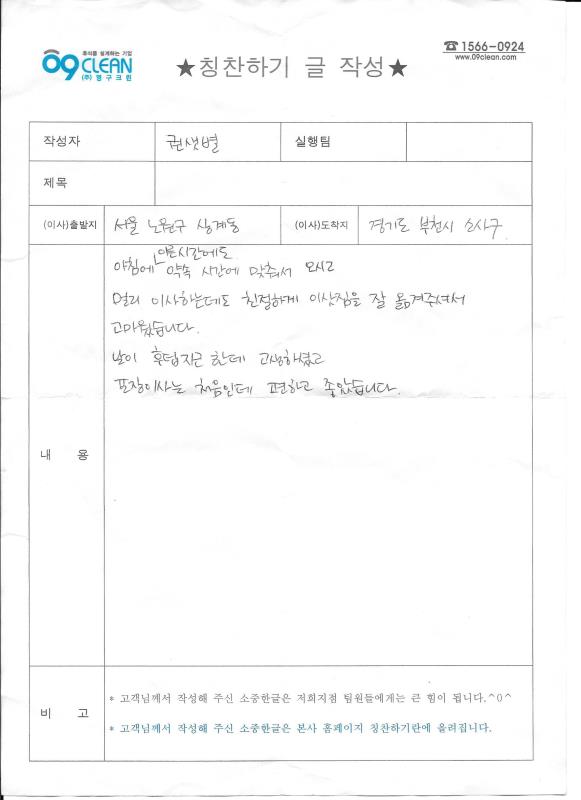 휴식을 설계하는 기업
09 CLEAN
(주)영구크린
★칭찬하기 글 작성★
☎ 1566-0924
www.09clean.com
작성자 권샛별 실행팀
제목
(이사)출발지 서울 노원구 상계동 (이사)도착지 경기도 부천시 소사구
이른시간에도
아침에 약속 시간에 맞춰서 오시고
멀리 이사하는데도 친절하게 이삿짐을 잘 옮겨주셔서
고마웠습니다.
날이 후텁지근 한데 고생하셨고
포장이사는 처음인데 편하고 좋았습니다.
내 용
비 고
* 고객님께서 작성해 주신 소중한글은 저희지점 팀원들에게는 큰 힘이 됩니다.^0^
* 고객님께서 작성해 주신 소중한글은 본사 홈페이지 칭찬하기란에 올려집니다.